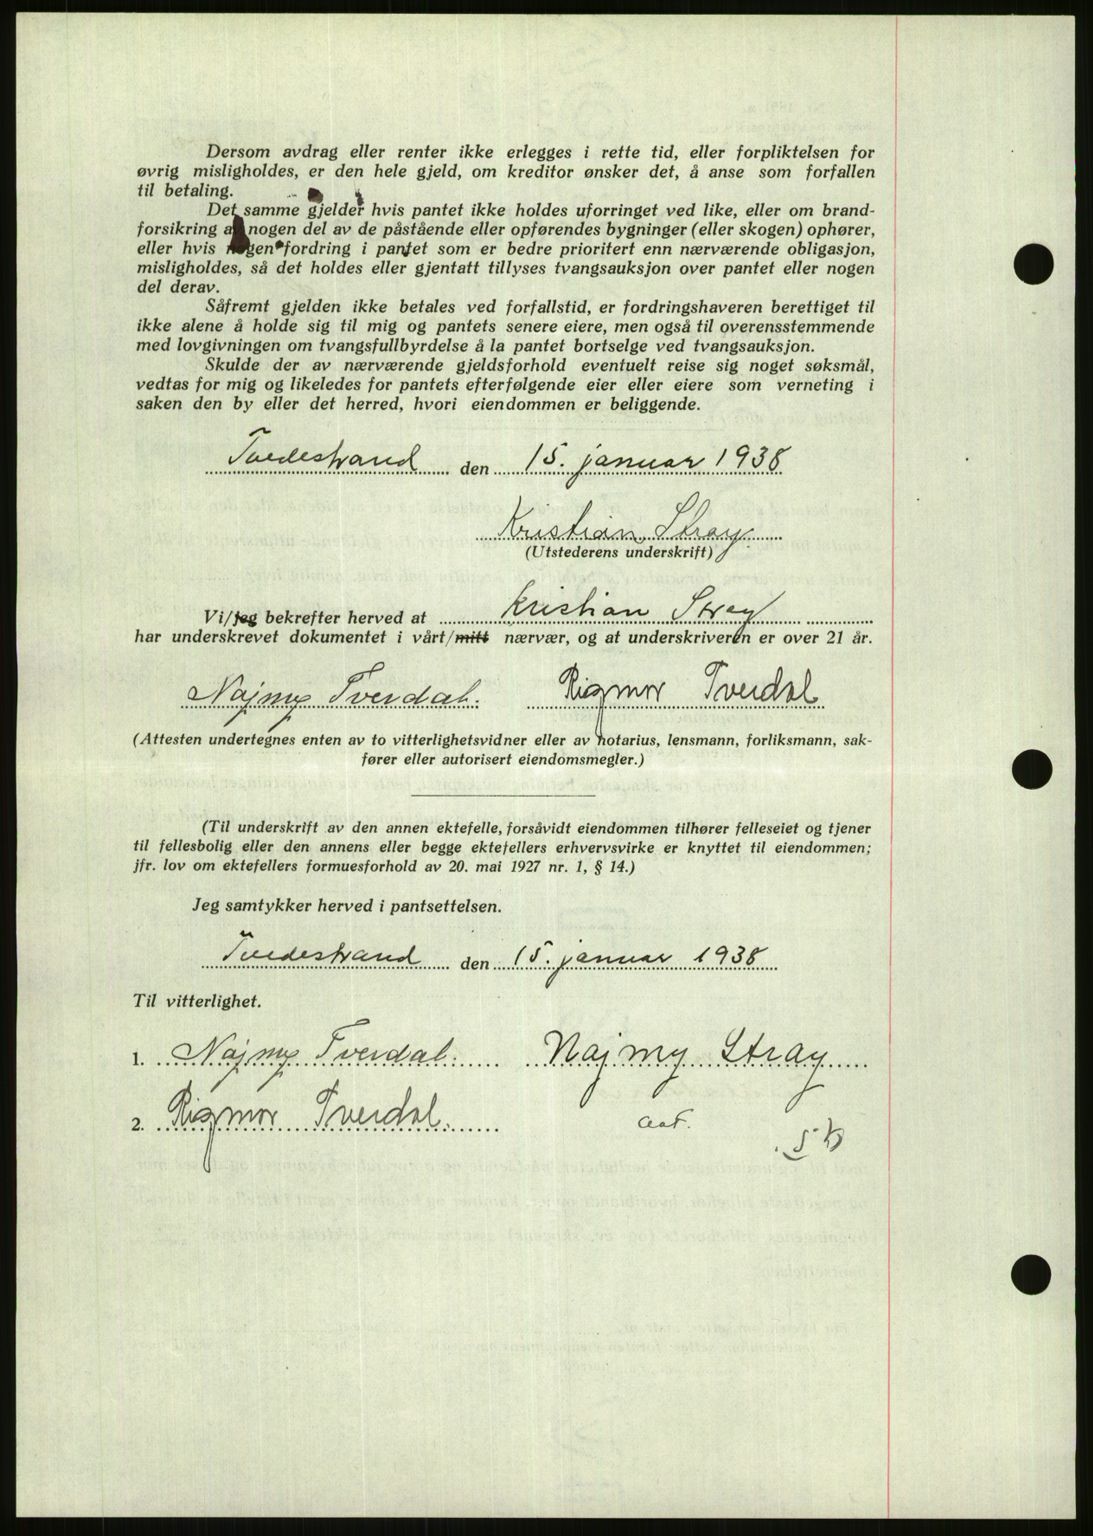 Dersom avdrag eller renter ikke erlegges i rette tid, eller forpliktelsen for
øvrig misligholdes, er den hele gjeld, om kreditor ønsker det, å anse som forfallen
til betaling.
Det samme gjelder hvis pantet ikke holdes uforringet ved like, eller om brand-
forsikring av nogen del av de påstående eller opførendes bygninger (eller skogen) ophører,
eller hvis nogen fordring i pantet som er bedre prioritert enn nærværende obligasjon,
misligholdes, så det holdes eller gjentatt tillyses tvangsauksjon over pantet eller nogen
del derav.
Såfremt gjelden ikke betales ved forfallstid, er fordringshaveren berettiget til
ikke alene å holde sig til mig og pantets senere eiere, men også til overensstemmende
med lovgivningen om tvangsfullbyrdelse å la pantet bortselge ved tvangsauksjon.
Skulde der av nærværende gjeldsforhold eventuelt reise sig noget søksmål,
vedtas for mig og likeledes for pantets efterfølgende eier eller eiere som verneting i
saken den by eller det herred, hvori eiendommen er beliggende.
Tvedestrand den 15. januar 1938
Kristian Stray
(Utstederens underskrift)
Vi/jeg bekrefter herved at Kristian Stray
har underskrevet dokumentet i vårt/mitt nærvær, og at underskriveren er over 21 år.
Najmy Tverdal. Rigmor Tverdal
(Attesten undertegnes enten av to vitterlighetsvidner eller av notarius, lensmann, forliksmann, sak-
fører eller autorisert eiendomsmegler.)
(Til underskrift av den annen ektefelle, forsåvidt eiendommen tilhører felleseiet og tjener
til fellesbolig eller den annens eller begge ektefellers erhvervsvirke er knyttet til eiendommen;
jfr. lov om ektefellers formuesforhold av 20. mai 1927 nr. 1, § 14.)
Jeg samtykker herved i pantsettelsen.
Tvedestrand den 15. januar 1938
Til vitterlighet.
1. Najmy Tverdal. Najmy Stray
2. Rigmor Tverdal.